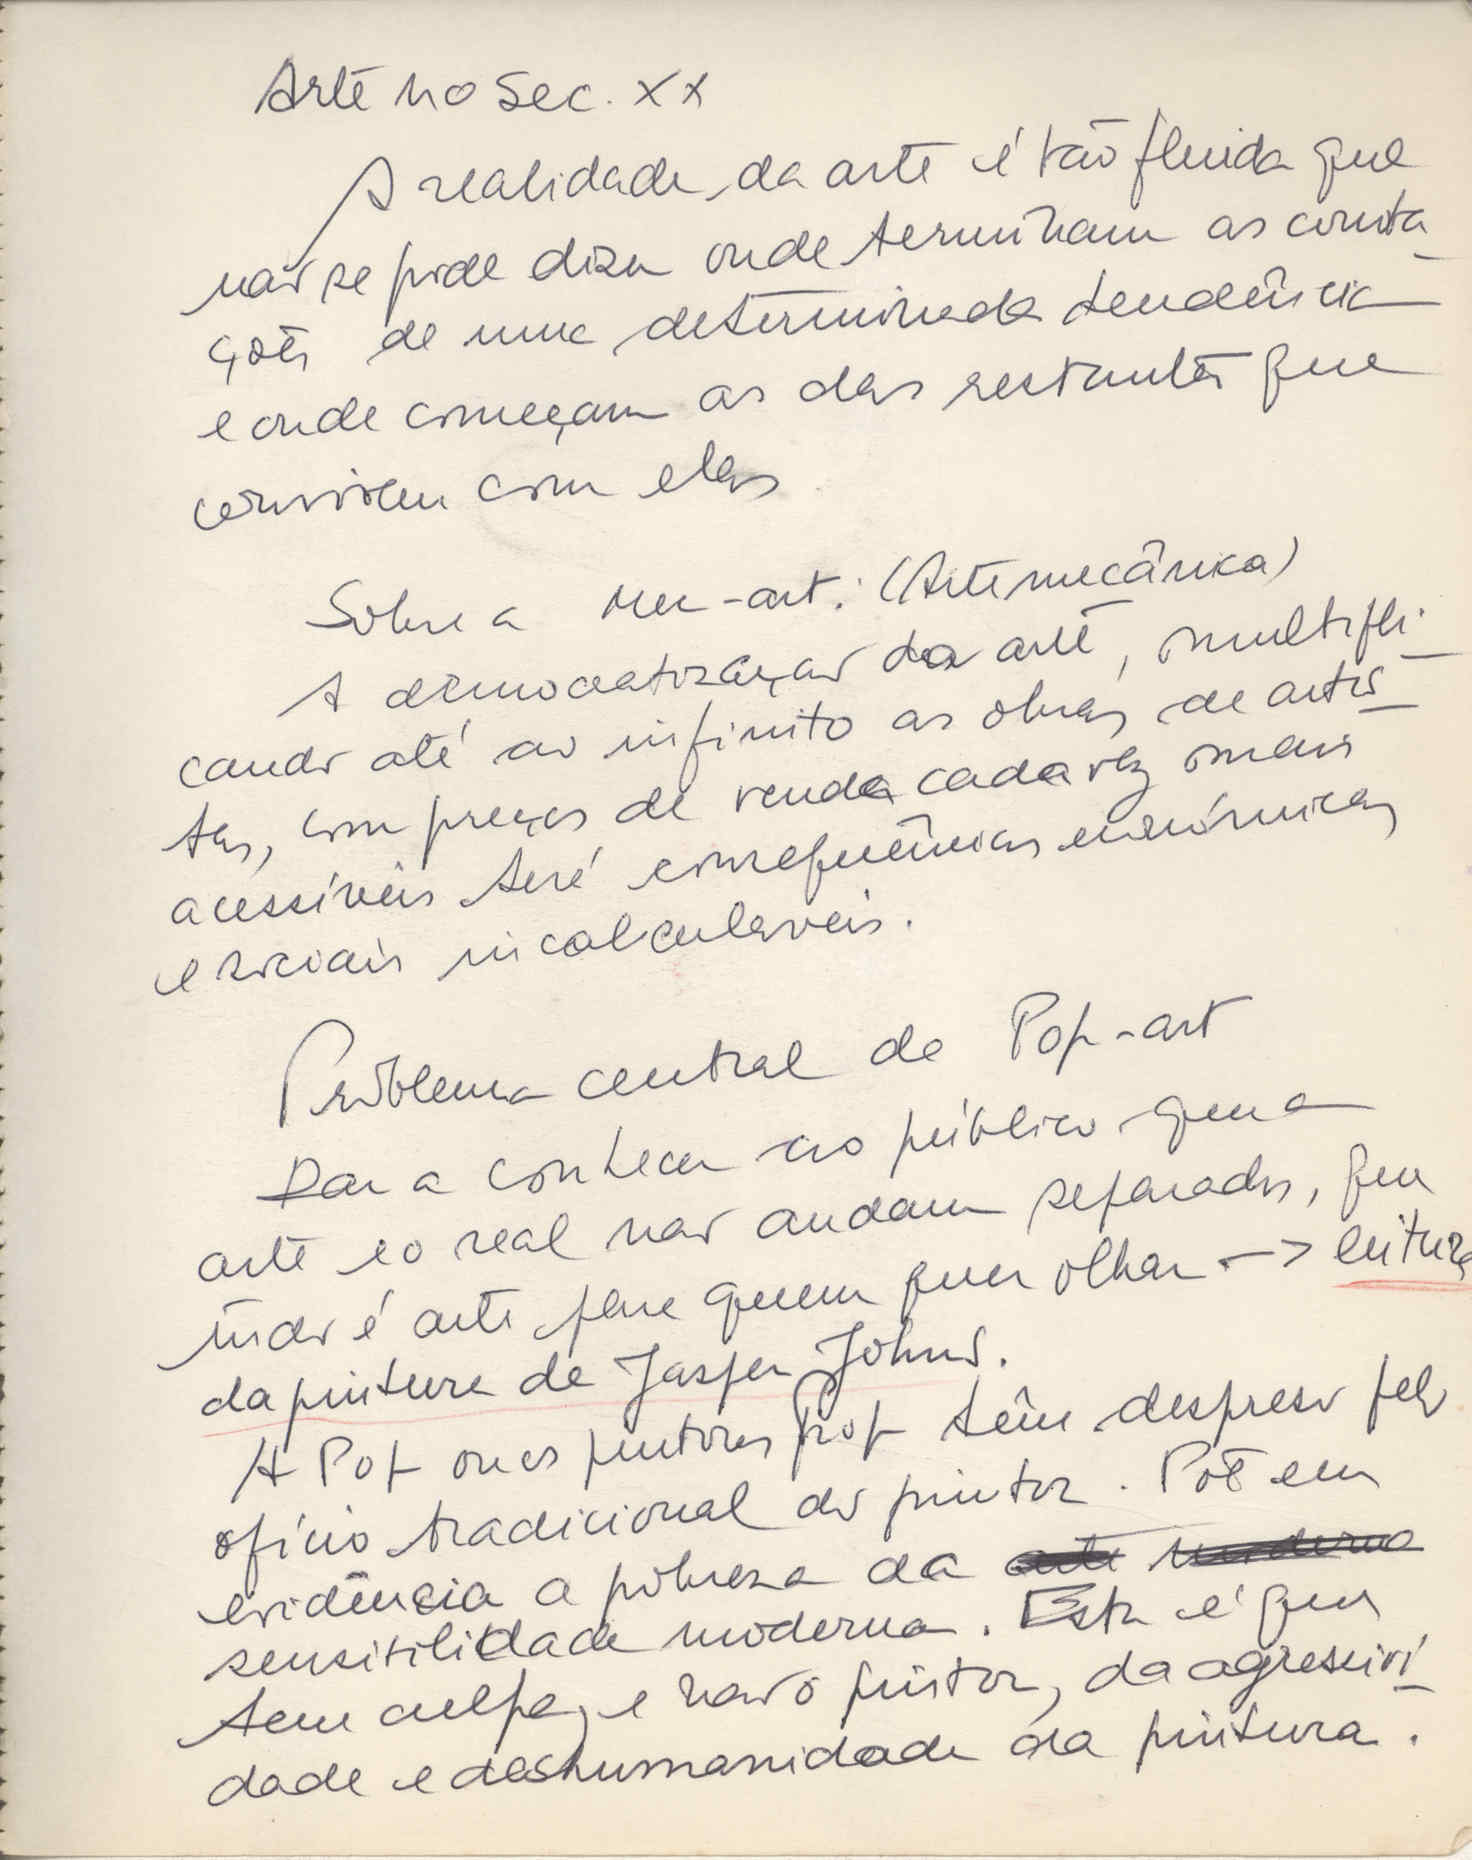 Arte no Sec. XX
A realidade da arte é tão fluida que
não se pode dizer onde terminham as conota-
ções de uma determinada tendência
e onde começam as das restantes que
convivem com elas
Sobre a Mec-art: (Arte mecânica)
A democratização da arte, multipli-
cando até ao infinito as obras de artis-
tas, com preços de venda cada vez mais
acessíveis terá consequências económicas
e sociais incalculaveis.
Problema central da Pop-art
Dar a conhecer ao público que a
arte e o real não andam separados, que
tudo é arte para quem quer olhar -> leitura
da pintura de Jasper Johns.
A Pop ou os pintores Pop têm despreso pelo
ofício tradicional do pintor. Põe em
evidência a pobreza da arte moderna
sensibilidade moderna. Esta é que
tem culpa, e não o pintor, da agressivi-
dade e deshumanidade da pintura.